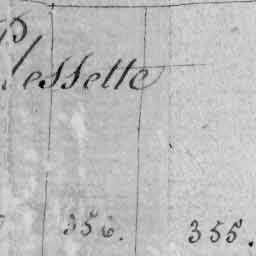 Plessette
356. 355.